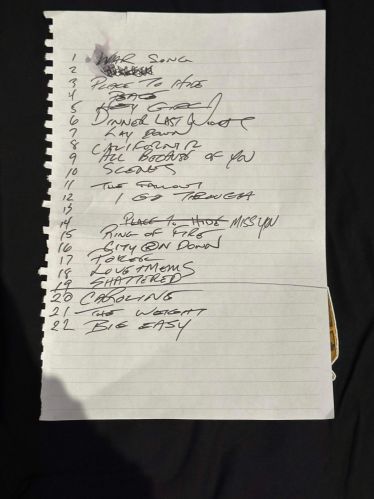 1 WAR SONG
2
3 PLACE TO HIDE
4 PEACE
5 HEY GIRL
6 DINNER LAST
7 LAY DOWN
8 CALIFORNIA
9 ALL BECAUSE OF YOU
10 SCENES
11 THE FALLOUT
12 I GO THROUGH
13
14 PLACE TO HIDE MISS YOU
15 RING OF FIRE
16 CITY DOWN
17
18 LOVE + MEMS
19 SHATTERED
20 CAROLINE
21 THE WEIGHT
22 BIG EASY